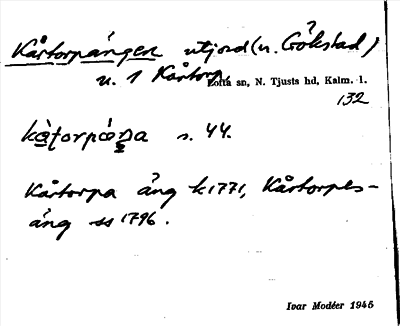 Kårtorpängen utjord (u. Gökstad)
u. 1 Kårtorp, Lofta sn, N. Tjusts hd, Kalm. l.
132
s. 44.
Kårtorpa äng k 1771, Kårtorpes-
äng ss 1796.
Ivar Modéer 1945